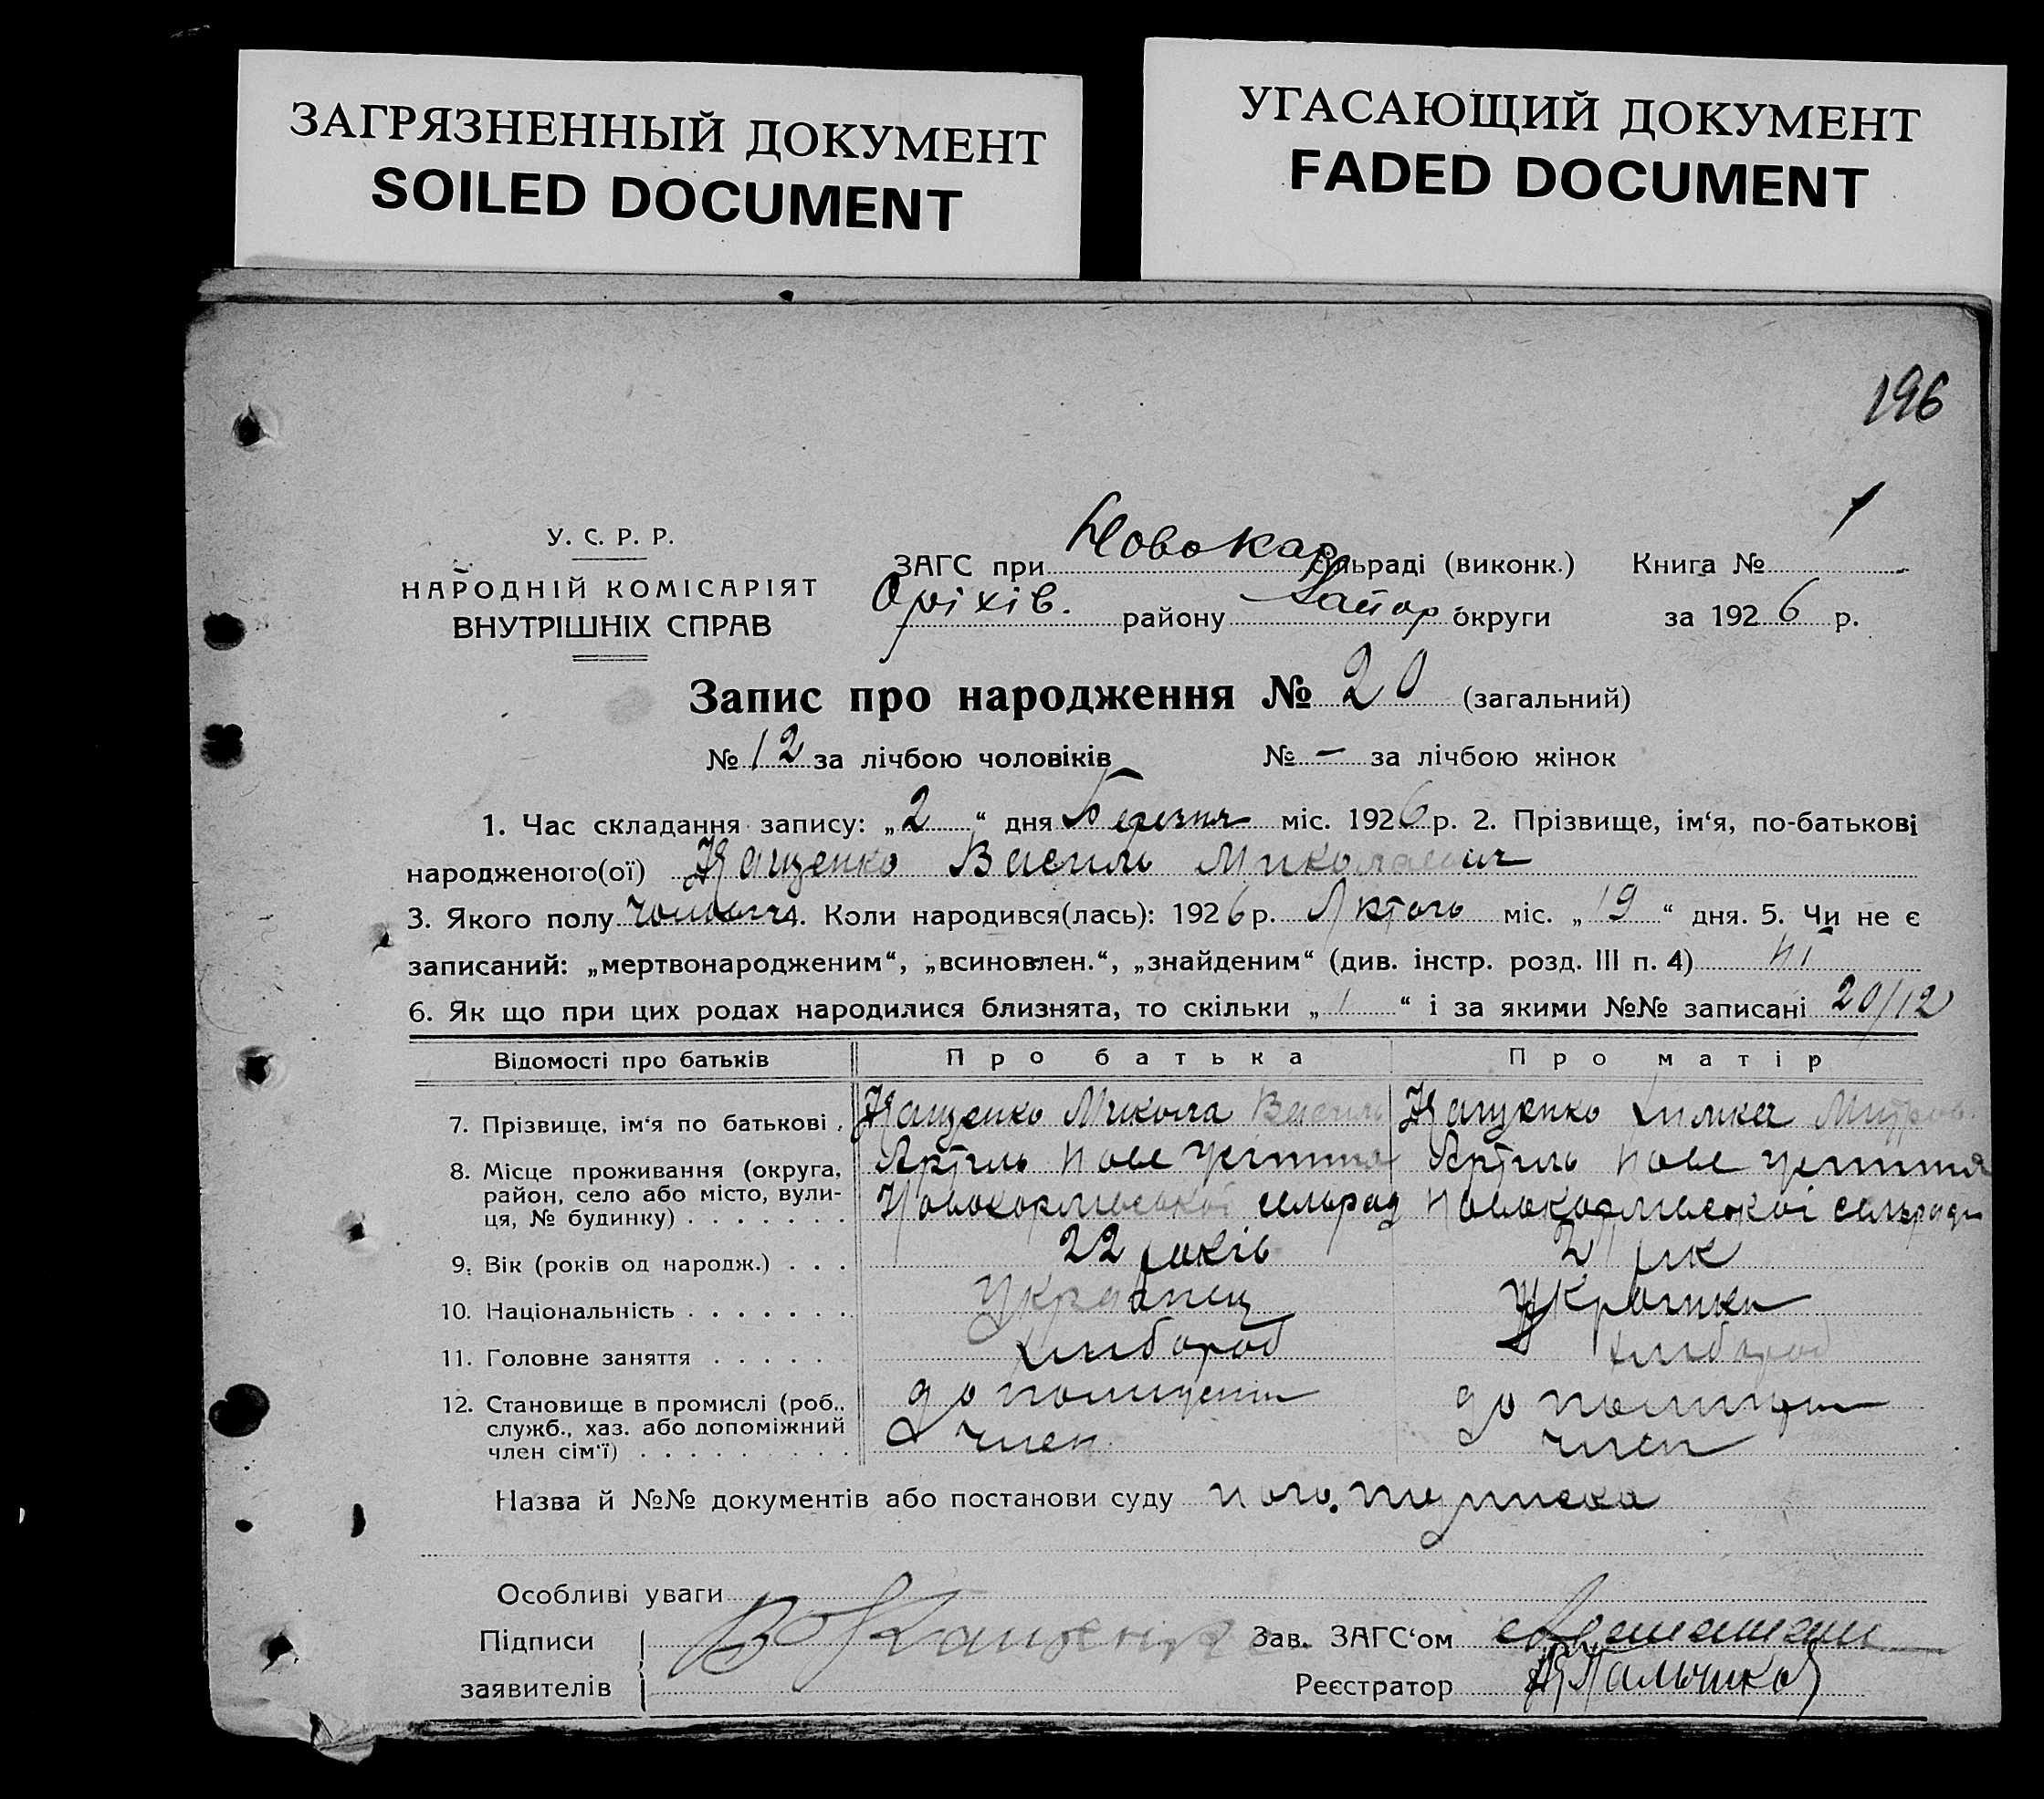 ЗАГРЯЗНЕННЫЙ ДОКУМЕНТ
SOILED DOCUMENT
УГАСАЮЩИЙ ДОКУМЕНТ
FADED DOCUMENT
196
У. С. Р. Р.
НАРОДНІЙ КОМІСАРІЯТ
ВНУТРІШНІХ СПРАВ
ЗАГС при Новокар сільраді (виконк.) Книга № 1
Оріхів. району Запор округи за 1926 р.
Запис про народження № 20 (загальний)
№ 12 за лічбою чоловіків № – за лічбою жінок
1. Час складання запису: „2“ дня Березня міс. 1926 р. 2. Прізвище, ім‘я, по-батькові
народженого(ої) Кащенко Василь Миколаевич
3. Якого полу 4. Коли народився(лась): 1926 р. Лютого міс. „19“ дня. 5. Чи не є
записаний: „мертвонародженим“, „всиновлен.“, „знайденим“ (див. інстр. розд. III п. 4) ні
6. Як що при цих родах народилися близнята, то скільки „1“ і за якими №№ записані 20/12
Відомості про батьків Про батька Про матір
7. Прізвище, ім‘я по батькові Кащенко Микола Василь Кащенко
8. Місце проживання (округа, район, село або місто, вулиця, № будинку) . . . . . . .
9. Вік (років од народж.) . . . 22 років 21 рік
10. Національність . . . . . . . Українец Українка
11. Головне заняття . . . . . хлібороб хлібороб
12. Становище в промислі (роб., служб., хаз. або допоміжний член сім‘ї) . . . . . . . . член член
Назва й №№ документів або постанови суду
Особливі уваги
Підписи
заявителів
В Кащенко
Зав. ЗАГС‘ом
Реєстратор Пальчиков